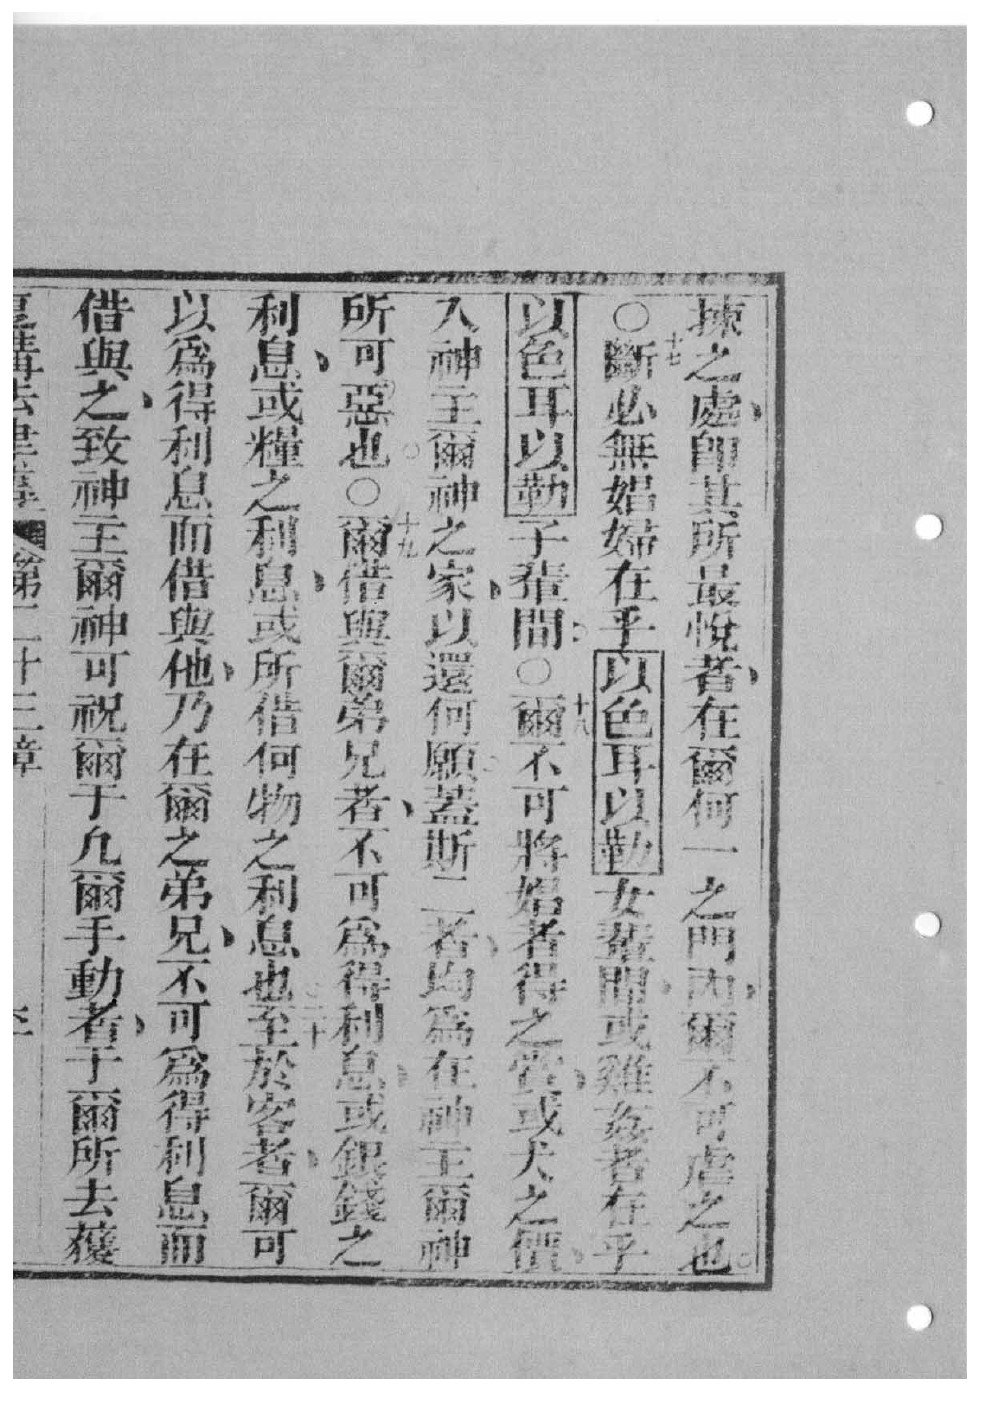 揀之處、卽其所最悅者、在爾何一之門內、爾不可虐之也。
○十七斷必無娼婦在乎以色耳以勒女輩間、或雞姦者在乎
以色耳以勒子輩間。○十八爾不可將娼者得之賞、或犬之價、
入神主爾神之家、以還何願。蓋斯二者、均爲在神主爾神
所可惡也。○十九爾借與爾弟兄者、不可爲得利息、或銀錢之
利息、或糧之利息、或所借何物之利息也。二十至於客者、爾可
以爲得利息而借與他、乃在爾之弟兄、不可爲得利息而
借與之、致神主爾神可祝爾于凡爾手動者、于爾所去獲
復講法律傳 第二十三章